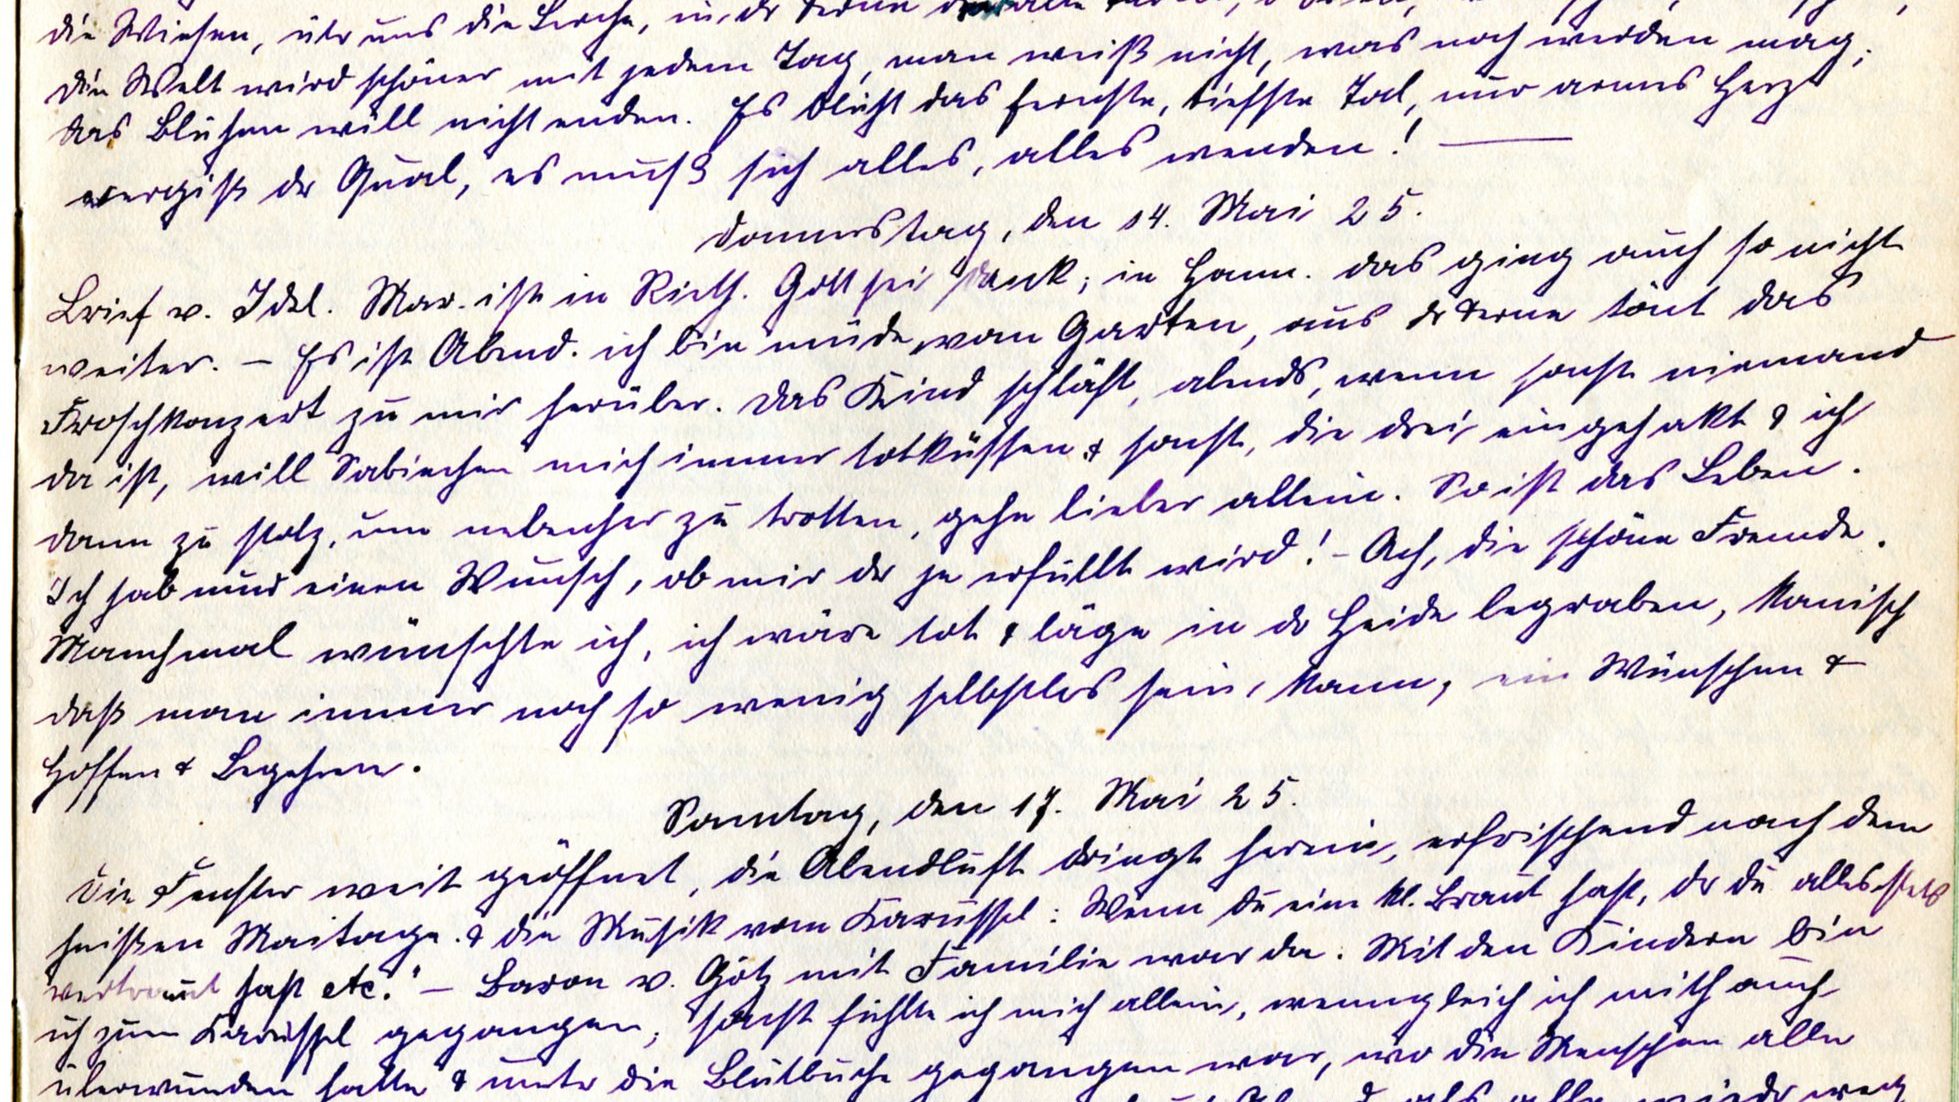 die Wiesen, über uns die Lerche, in der Ferne
die Welt wird schöner mit jedem Tag, man weiß nicht, was noch werden mag,
das Blühen will nicht enden. Es blüht das fernste, tiefste Tal, nur armes Herz
vergiß der Qual, es muß sich alles, alles wenden! —
Donnerstag, den 14. Mai 25.
Brief v. Idel. Mar. ist in Rieth. Gott sei Dank; in Hann. das ging auch so nicht
weiter. – Es ist Abend. ich bin müde vom Garten, aus dr Ferne tönt das
Froschkonzert zu mir herüber. Das Kind schläft, abends, wenn sonst niemand
da ist, will Sabinchen mich immer totküssen & sonst, die drei eingehakt & ich
dann zu stolz, um nebenher zu trotten, gehe lieber allein. So ist das Leben.
Ich hab nur einen Wunsch, ob mir dr je erfüllt wird! – Ach, die schöne Fremde.
Manchmal wünschte ich, ich wäre tot & läge in dr Heide begraben, komisch
daß man immer noch so wenig selbstlos sein kann, ein Wünschen &
Hoffen & Begehren.
Sonntag, den 17. Mai 25.
Die Fenster weit geöffnet, die Abendluft dringt herein, erfrischend nach dem
heißen Maitage. & die Musik vom Karussel: Wenn du eine kl. Braut hast, dr du alles stets
vertraut hast etc." – Baron v. Götz mit Familie war da. Mit den Kindern bin
ich zum Karussel gegangen, sonst fühlte ich mich allein, wenngleich ich mich auch
überwunden hatte & unter die Blutbuche gegangen war, wo die Menschen alle
als alle wieder weg